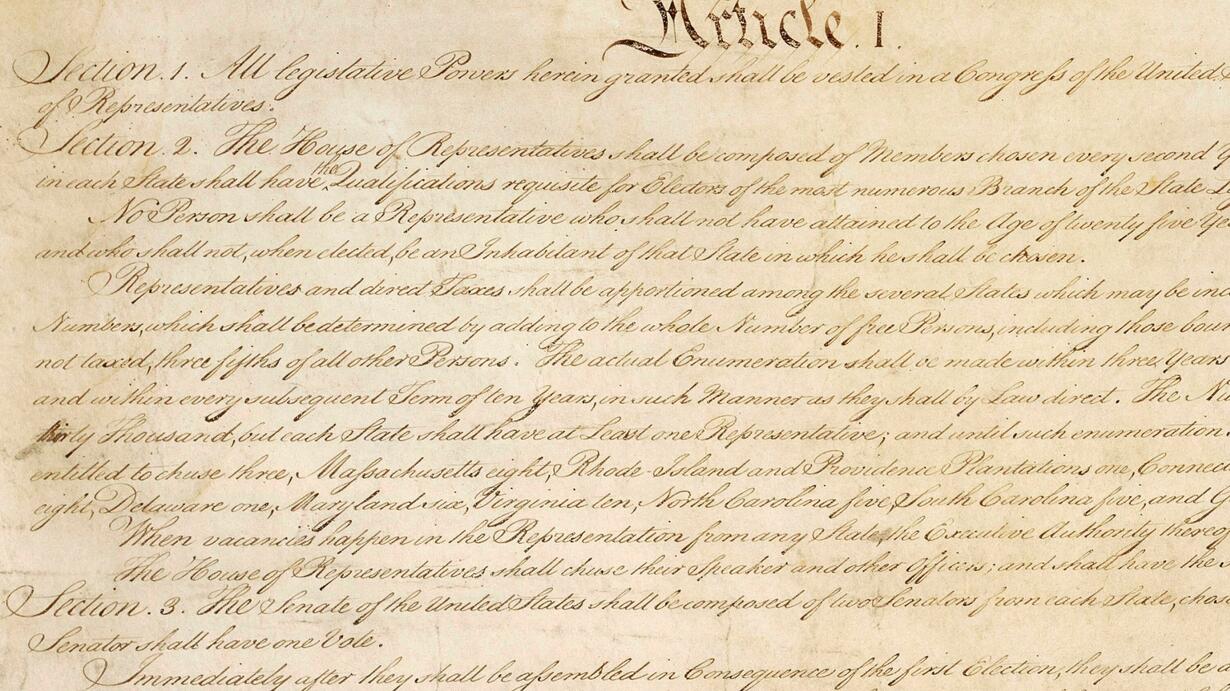 Article. I.
Section. 1. All legislative Powers herein granted shall be vested in a Congress of the United
of Representatives.
Section. 2. The House of Representatives shall be composed of Members chosen every second
in each State shall have the Qualifications requisite for Electors of the most numerous Branch of the State
No Person shall be a Representative who shall not have attained to the Age of twenty five
and who shall not, when elected, be an Inhabitant of that State in which he shall be chosen.
Representatives and direct Taxes shall be apportioned among the several States which may be
Numbers, which shall be determined by adding to the whole Number of free Persons, including those
not taxed, three fifths of all other Persons. The actual Enumeration shall be made within three Years
and within every subsequent Term of ten Years, in such Manner as they shall by Law direct. The
thirty Thousand, but each State shall have at Least one Representative; and until such enumeration
entitled to chuse three, Massachusetts eight, Rhode-Island and Providence Plantations one,
eight, Delaware one, Maryland six, Virginia ten, North Carolina five, South Carolina five, and
When vacancies happen in the Representation from any State, the Executive Authority
The House of Representatives shall chuse their Speaker and other Officers; and shall have the
Section. 3. The Senate of the United States shall be composed of two Senators from each State,
Senator shall have one Vote.
Immediately after they shall be assembled in Consequence of the first Election, they shall be